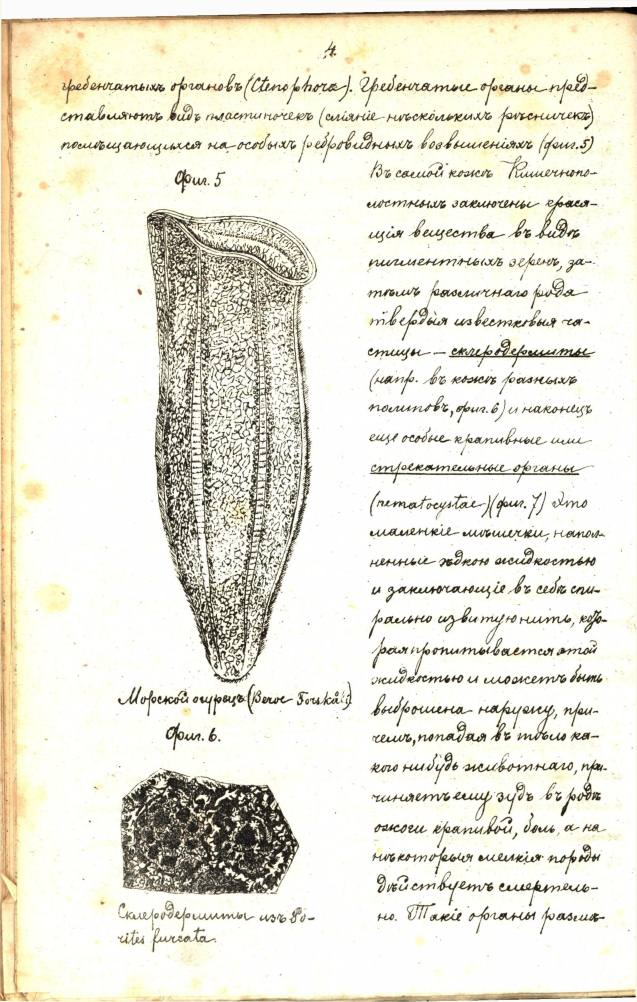 4.
гребенчатыхъ органовъ (Ctenophoræ). Гребенчатые органы пред-
ставляютъ видъ пластиночекъ (сліяніе нѣсколькихъ рѣсничекъ)
помѣщающихся на особыхъ ребровидныхъ возвышеніяхъ (фиг. 5)
Фиг. 5
Морской огурецъ (Beroe Forskålii)
Фиг. 6.
Склеродермиты изъ Po-
rites furcata.
Въ самой кожѣ Кишечнопо-
лостныхъ заключены крася-
щія вещества въ видѣ
пигментныхъ зеренъ, за-
тѣмъ различнаго рода
твердыя известковыя ча-
стицы — склеродермиты
(напр. въ кожѣ разныхъ
полиповъ, фиг. 6) и наконецъ
еще особые крапивные или
стрекательные органы
(nematocystae) (фиг. 7) Это
маленькіе мѣшечки, напол-
ненные ѣдкою жидкостью
и заключающіе въ себѣ спи-
рально извитую нить, кото-
рая пропитывается этой
жидкостью и можетъ быть
выброшена наружу, при-
чемъ, попадая въ тѣло ка-
кого нибудь животнаго, при-
чиняетъ ему зудъ въ родѣ
ожоги крапивой, боль, а на
нѣкоторыя мелкія породы
дѣйствуетъ смертель-
но. Такіе органы размѣ-